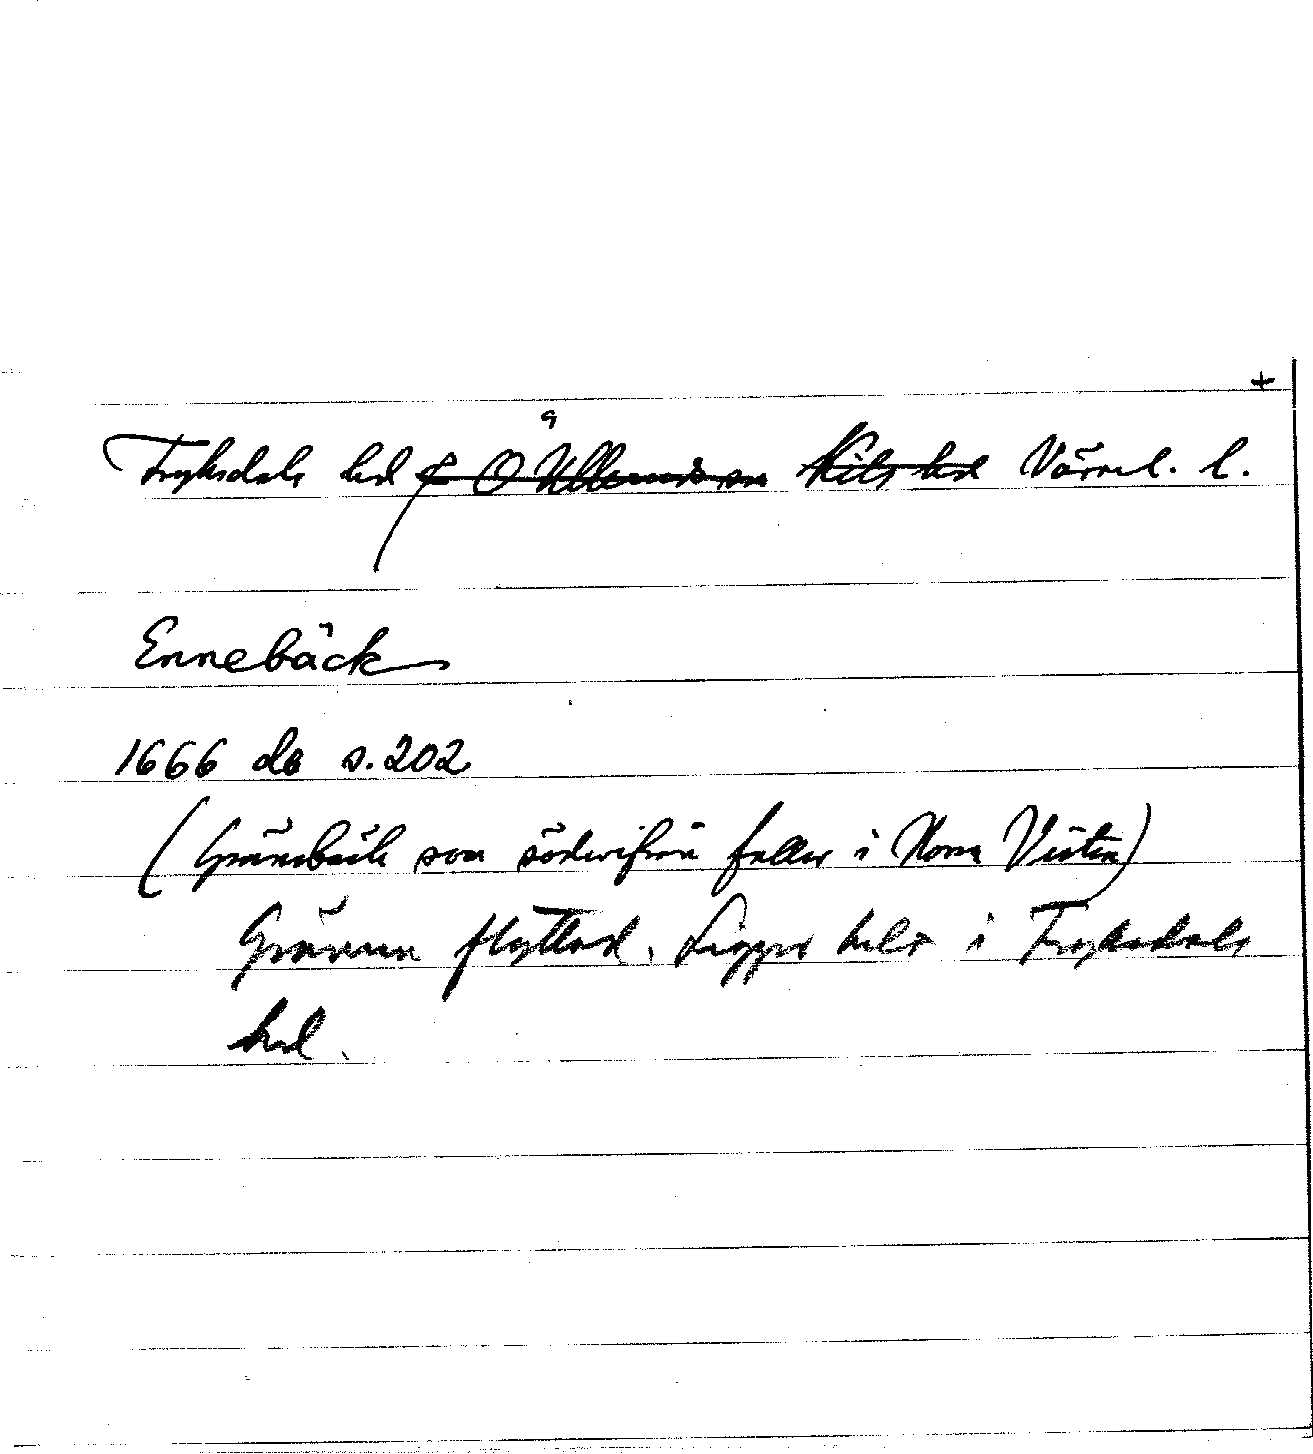 +
Fryksdals hd f Ö Ullerud sn Kils hd Värml. l.
Ennebäck
1666 db s. 202
(Gränsbäck som söderifrån faller i Norra Visten)
Gränsen flyttad. Ligger helt i Fryksdals
hd.